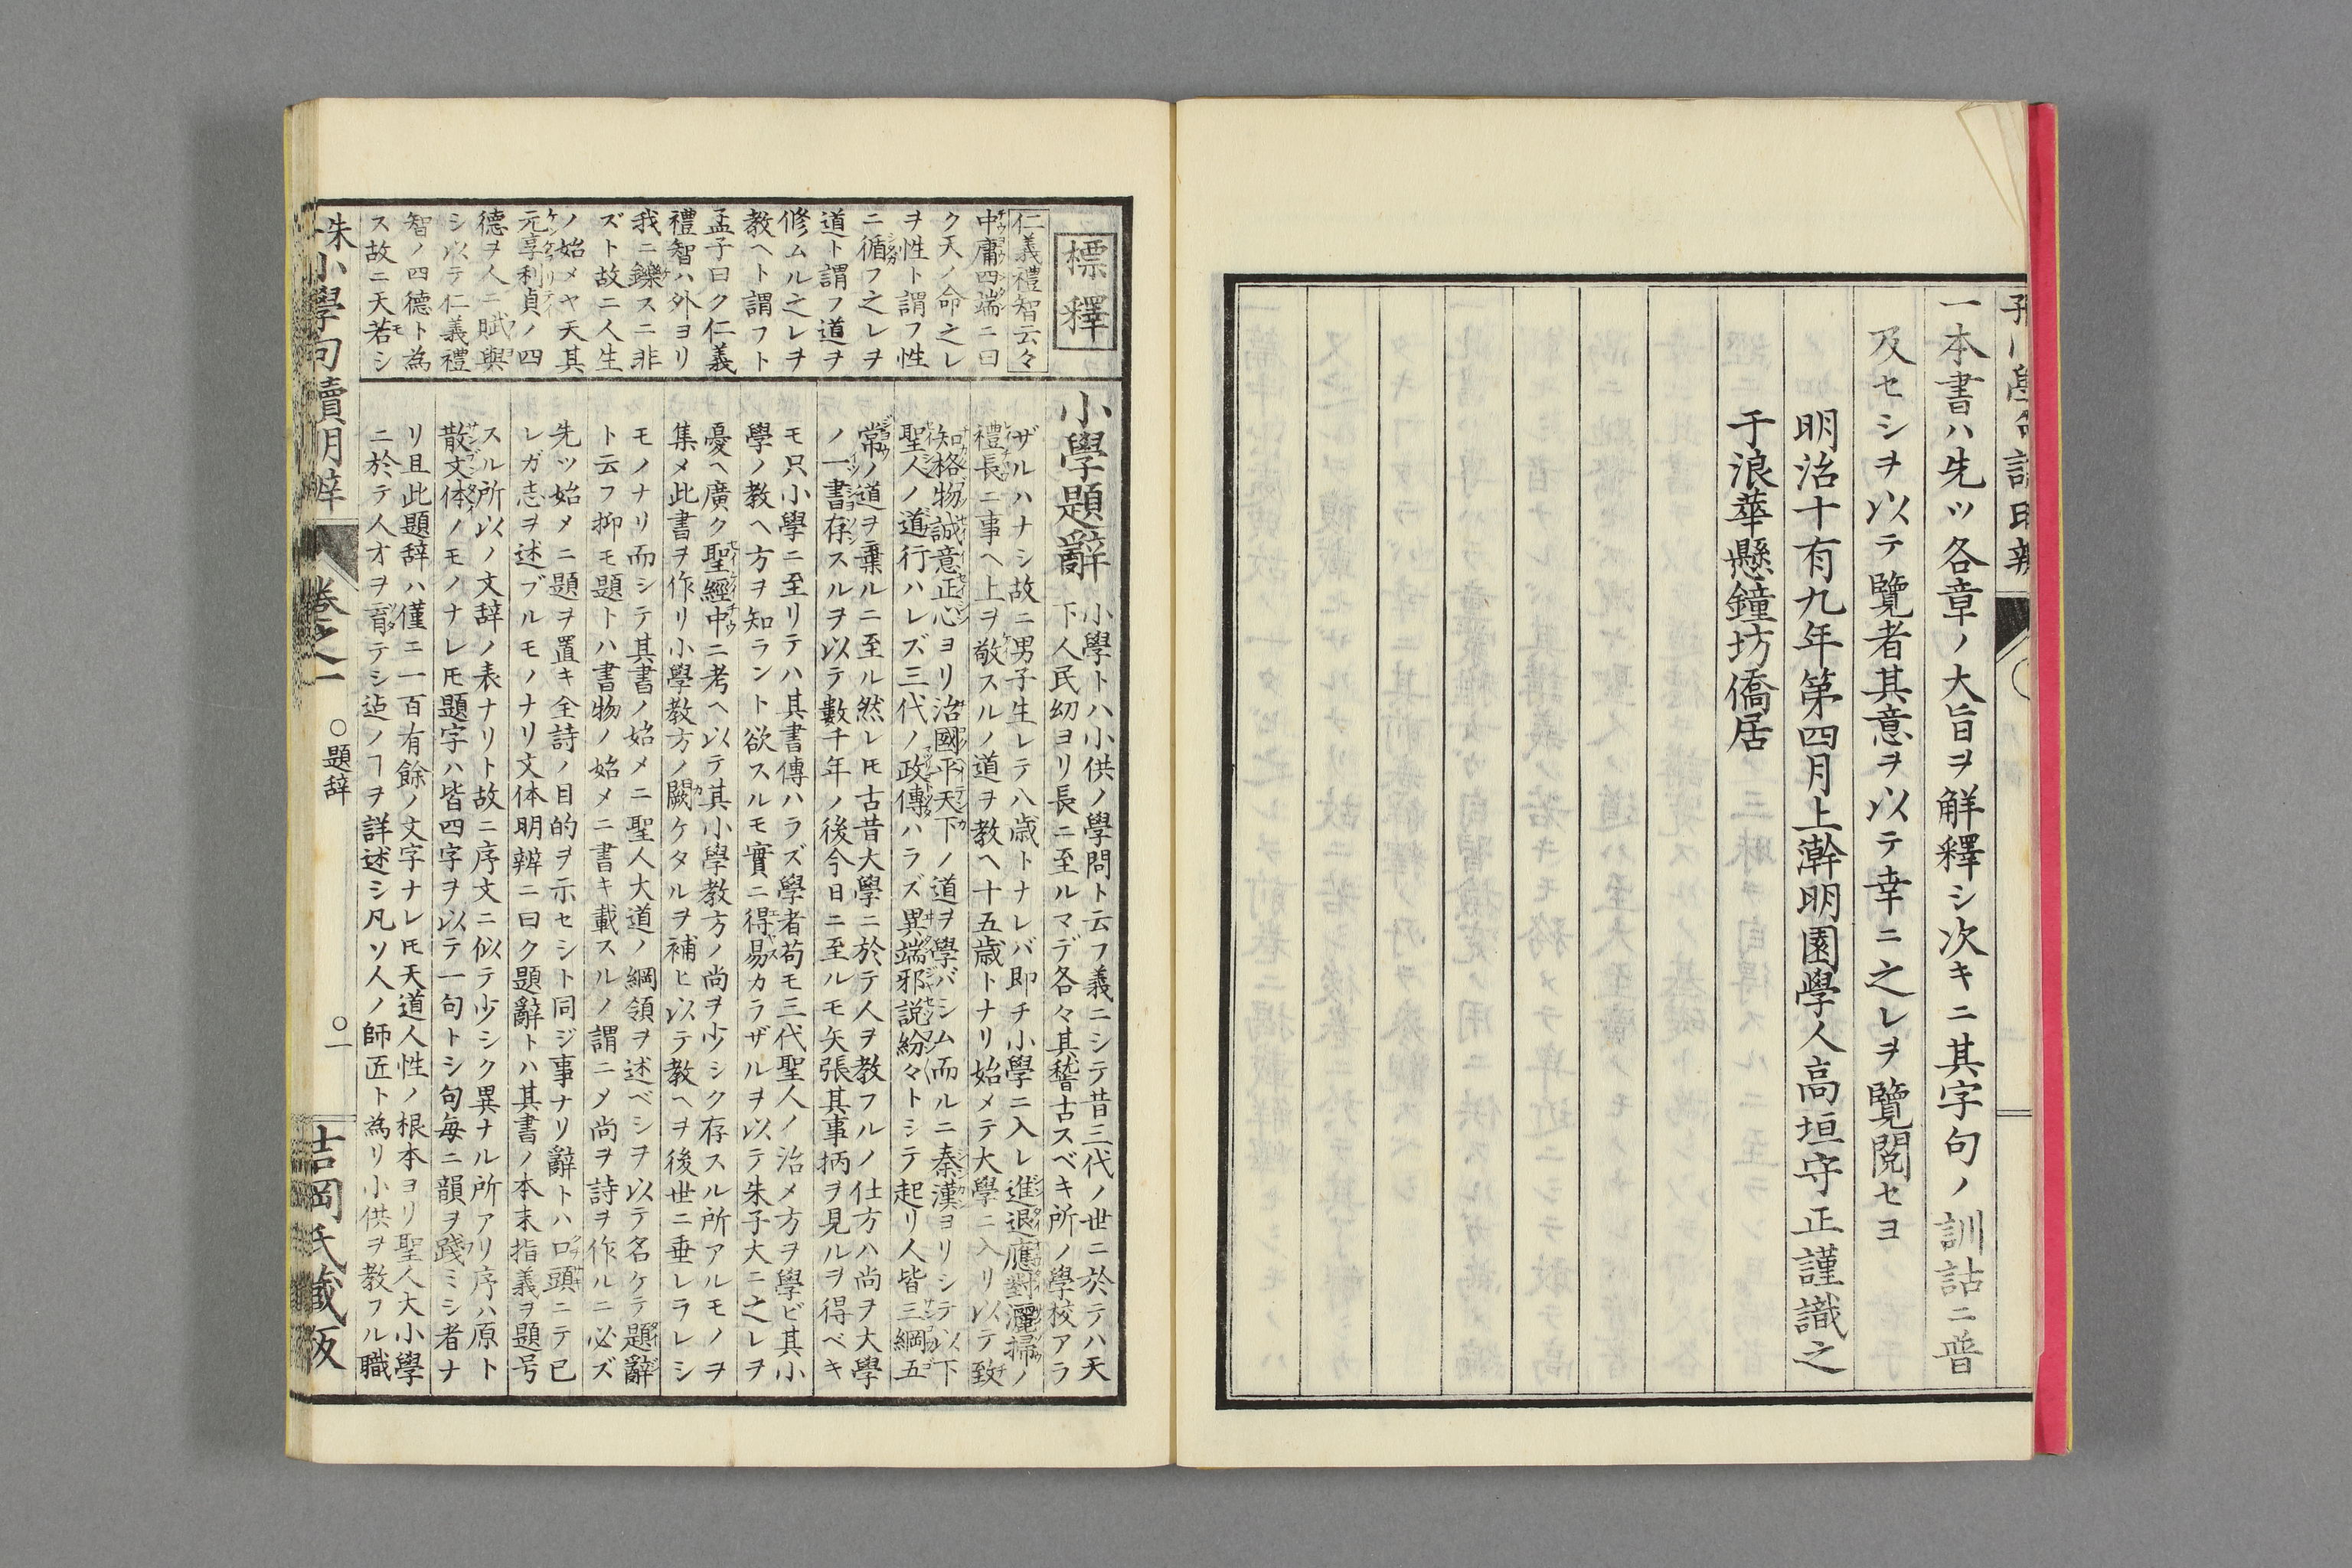 一本書ハ先ツ各章ノ大旨ヲ解釋シ次キニ其字句ノ訓詁ニ普
及セシヲ以テ覽者其意ヲ以テ幸ニ之レヲ覽閲セヨ
明治十有九年第四月上澣明園學人高垣守正謹識之
于浪華懸鐘坊僑居
標釋
仁義禮智云々
中庸四端ニ曰
ク天ノ命之レ
ヲ性ト謂フ性
ニ循フ之レヲ
道ト謂フ道ヲ
修ムル之レヲ
教ヘト謂フト
孟子曰ク仁義
禮智ハ外ヨリ
我ニ鑠スニ非
ズト故ニ人生
ノ始メヤ天其
元亨利貞ノ四
德ヲ人ニ賦與
シ以テ仁義禮
智ノ四德ト為
ス故ニ天若シ
小學題辭
小學トハ小供ノ學問ト云フ義ニシテ昔三代ノ世ニ於テハ天
下人民幼ヨリ長ニ至ルマデ各々其稽古スベキ所ノ學校アラ
ザルハナシ故ニ男子生レテ八歳トナレバ即チ小學ニ入レ進退應對灑掃ノ
禮長ニ事ヘ上ヲ敬スルノ道ヲ教ヘ十五歳トナリ始メテ大學ニ入リ以テ致
知格物誠意正心ヨリ治國平天下ノ道ヲ學バシム而ルニ秦漢ヨリシテ以下
聖人ノ道行ハレズ三代ノ政傳ハラズ異端邪説紛々トシテ起リ人皆三綱五
常ノ道ヲ棄ルニ至ル然レ𪜈古昔大學ニ於テ人ヲ教フルノ仕方ハ尚ヲ大學
ノ一書存スルヲ以テ數千年ノ後今日ニ至ルモ矢張其事柄ヲ見ルヲ得ベキ
モ只小學ニ至リテハ其書傳ハラズ學者苟モ三代聖人ノ治メ方ヲ學ビ其小
學ノ教ヘ方ヲ知ラント欲スルモ實ニ得易カラザルヲ以テ朱子大ニ之レヲ
憂ヘ廣ク聖經中ニ考ヘ以テ其小學教方ノ尚ヲ少シク存スル所アルモノヲ
集メ此書ヲ作リ小學教方ノ闕ケタルヲ補ヒ以テ教ヘヲ後世ニ垂レラレシ
モノナリ而シテ其書ノ始メニ聖人大道ノ綱領ヲ述ベシヲ以テ名ケテ題辭
ト云フ抑モ題トハ書物ノ始メニ書キ載スルノ謂ニメ尚ヲ詩ヲ作ルニ必ズ
先ツ始メニ題ヲ置キ全詩ノ目的ヲ示セシト同ジ事ナリ辭トハ口頭ニテ已
レガ志ヲ述ブルモノナリ文体明辨ニ曰ク題辭トハ其書ノ本末指義ヲ題号
スル所以ノ文辞ノ表ナリト故ニ序文ニ似テ少シク異ナル所アリ序ハ原ト
散文体ノモノナレ𪜈題字ハ皆四字ヲ以テ一句トシ句毎ニ韻ヲ踐ミシ者ナ
リ且此題辞ハ僅ニ一百有餘ノ文字ナレ𪜈天道人性ノ根本ヨリ聖人大小學
ニ於テ人才ヲ育テシ迠ノヿヲ詳述シ凡ソ人ノ師匠ト為リ小供ヲ教フル職
朱小學句讀明辨
卷之一
○題辞
○一
吉岡氏藏板